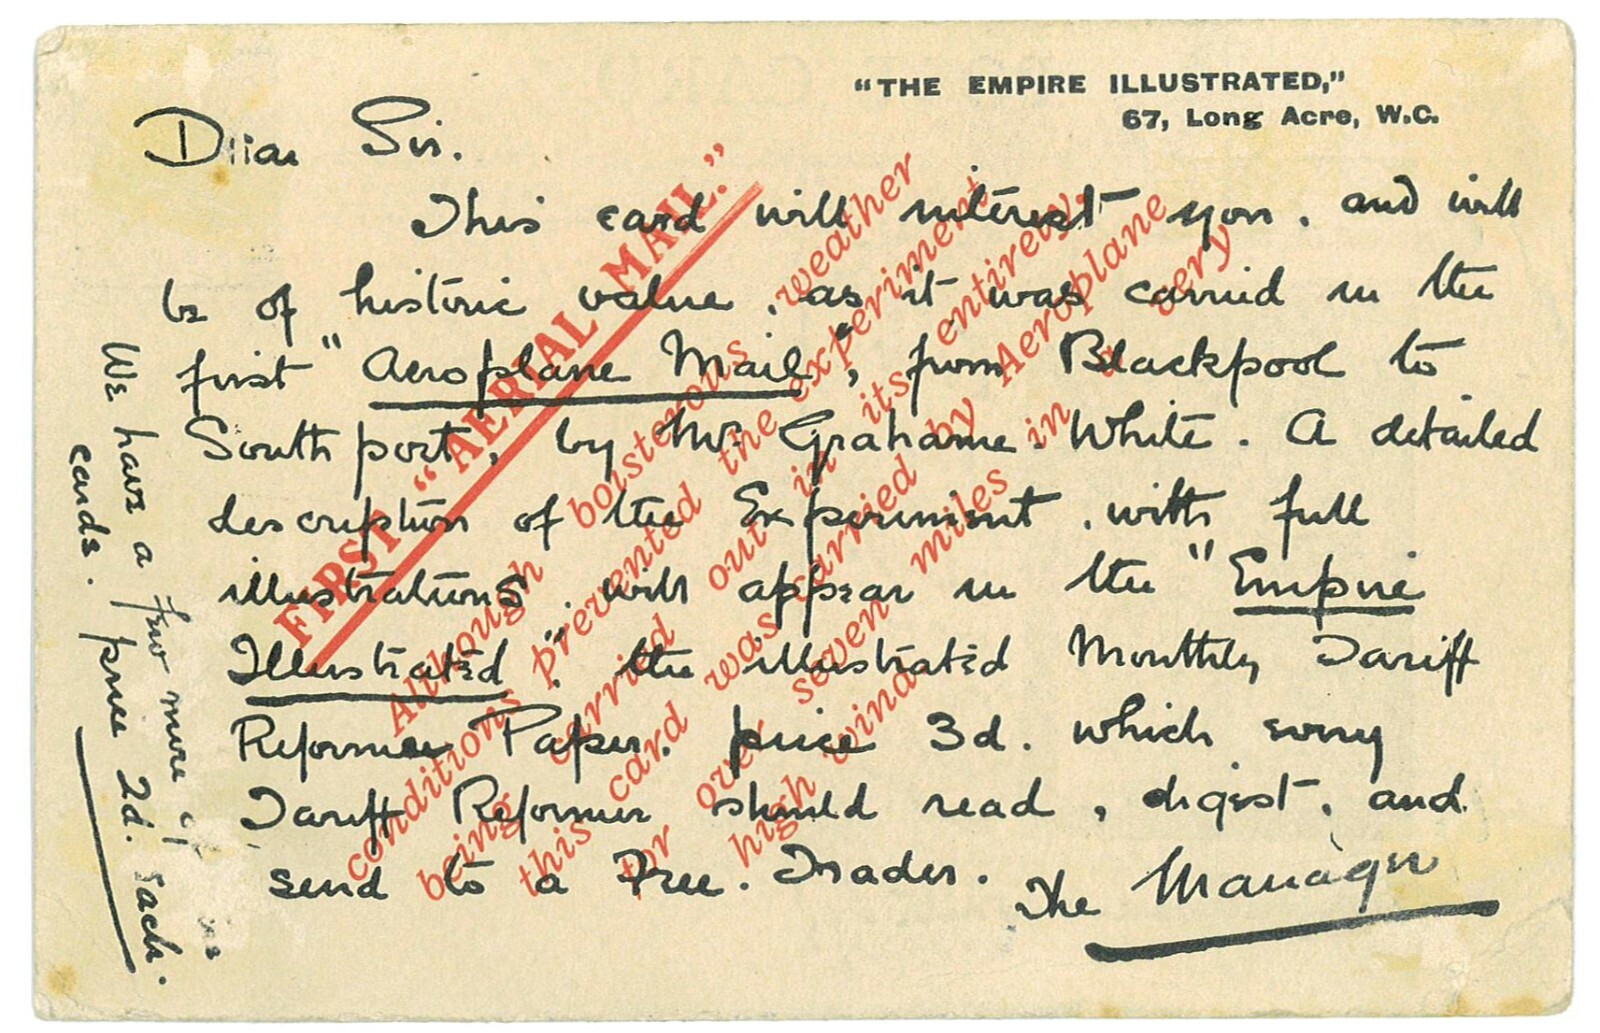 "THE EMPIRE ILLUSTRATED,"
67, Long Acre, W.C.
Dear Sir.
This card will interest you, and will
be of historic value, as it was carried in the
first "Aeroplane Mail", from Blackpool to
Southport, by Mr. Grahame-White. A detailed
description of the Experiment, with full
illustrations, will appear in the "Empire
Illustrated", the illustrated Monthly Tariff
Reformer Paper, price 3d. which every
Tariff Reformer should read, digest, and
send to a Free-Trader.
The Manager
We have a few more of
cards. price 2d. each.
FIRST "AERIAL MAIL."
Although boisterous weather
conditions prevented the experiment
being carried out in its entirety,
this card was carried by Aeroplane
for over seven miles in a very
high wind.